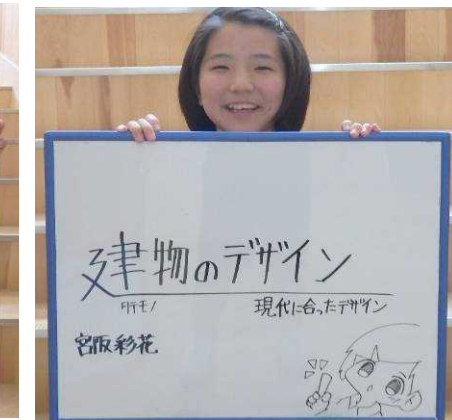 建物のデザイン
タテモノ
現代に合ったデザイン
宮阪彩花